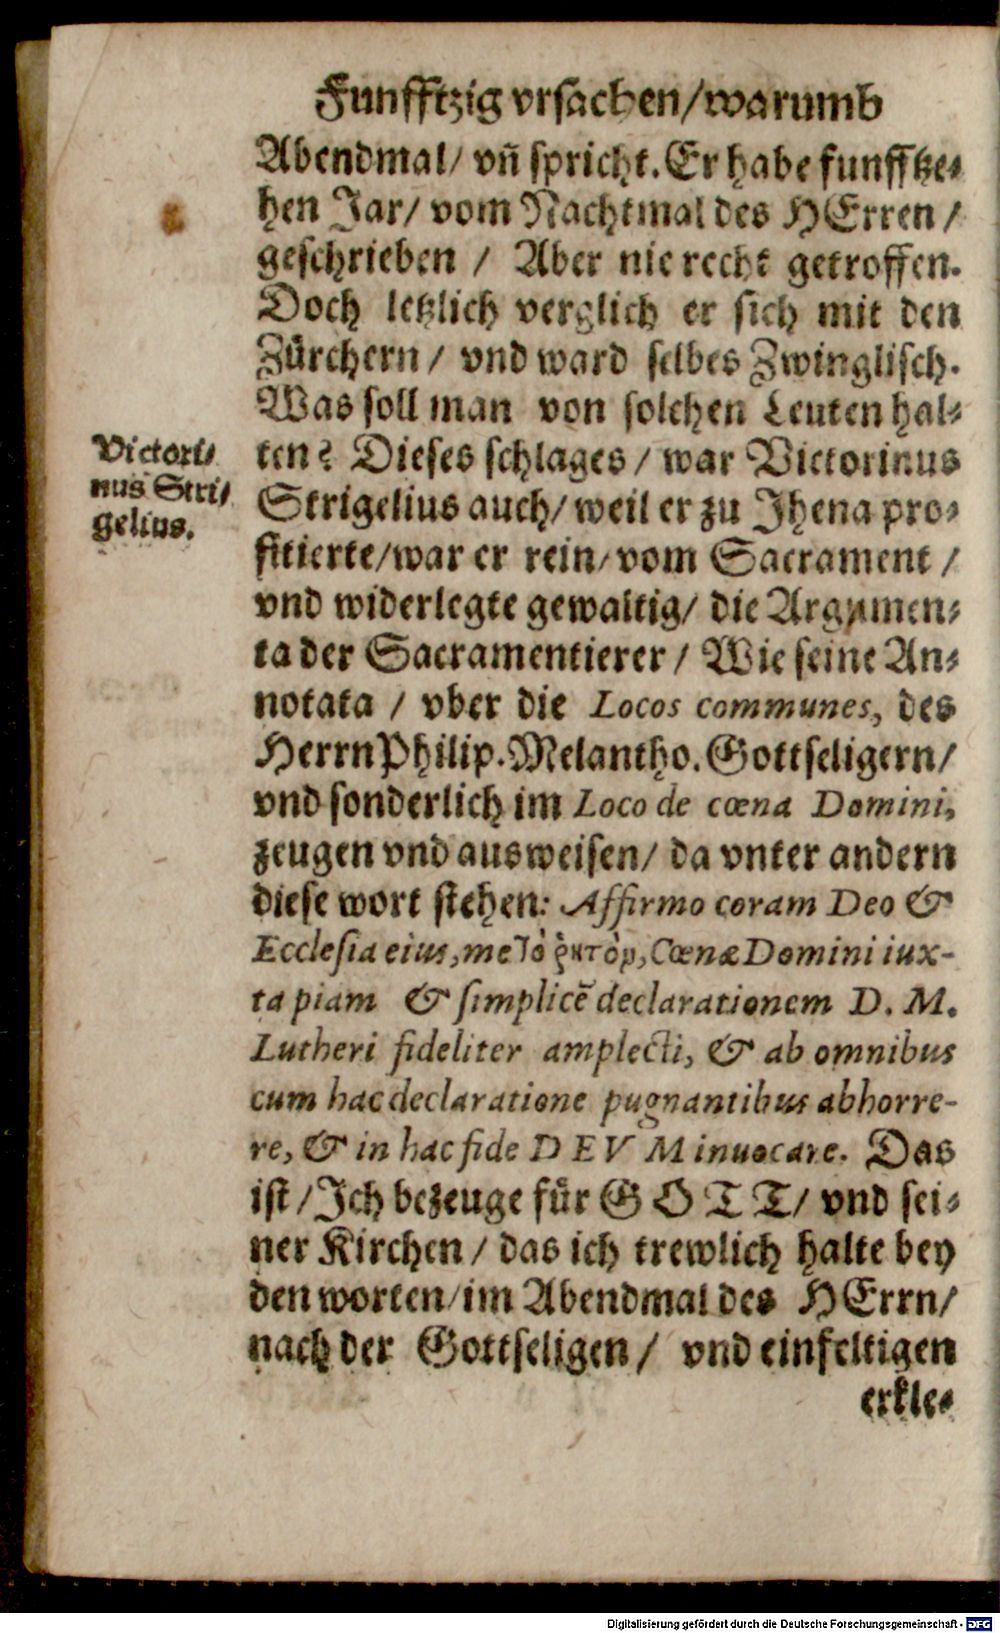 Funfftzig vrsachen/warumb
Abendmal/ vñ spricht. Er habe funfftze⸗
hen Jar/ vom Nachtmal des HErren /
geschrieben / Aber nie recht getroffen.
Doch letzlich verglich er sich mit den
Zürchern / vnd ward selbes Zwinglisch.
Was soll man von solchen Leuten hal⸗
ten? Dieses schlages / war Victorinus
Strigelius auch/ weil er zu Jhena pro⸗
fitierte/war er rein/ vom Sacrament /
vnd widerlegte gewaltig/ die Argumen⸗
ta der Sacramentierer / Wie seine An⸗
notata / vber die Locos communes, des
Herrn Philip. Melantho. Gottseligern/
vnd sonderlich im Loco de cœna Domini,
zeugen vnd ausweisen/ da vnter andern
diese wort stehen: Affirmo coram Deo &
Ecclesia eius, me τὸ ῥητὸν, Cœnæ Domini iux-
ta piam & simplicẽ declarationem D. M.
Lutheri fideliter amplecti, & ab omnibus
cum hac declaratione pugnantibus abhorre-
re, & in hac fide DEVM inuocare. Das
ist / Jch bezeuge für GOTT/ vnd sei⸗
ner Kirchen / das ich trewlich halte bey
den worten/im Abendmal des HErrn/
nach der Gottseligen / vnd einfeltigen
erkle⸗
Victori⸗
nus Stri⸗
gelius.
Digitalisierung gefördert durch die Deutsche Forschungsgemeinschaft - DFG